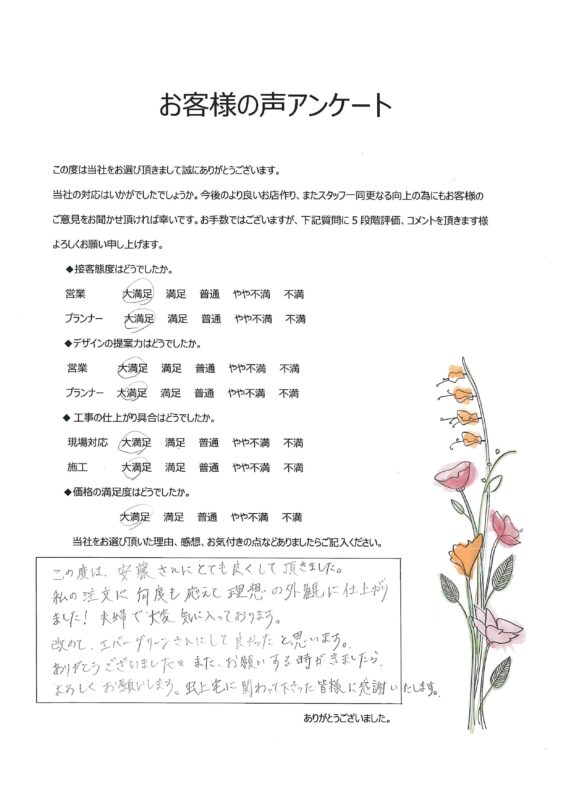 お客様の声アンケート
この度は当社をお選び頂きまして誠にありがとうございます。
当社の対応はいかがでしたでしょうか。今後のより良いお店作り、またスタッフ一同更なる向上の為にもお客様の
ご意見をお聞かせ頂ければ幸いです。お手数ではございますが、下記質問に５段階評価、コメントを頂きます様
よろしくお願い申し上げます。
◆接客態度はどうでしたか。
営業 大満足 満足 普通 やや不満 不満
プランナー 大満足 満足 普通 やや不満 不満
◆デザインの提案力はどうでしたか。
営業 大満足 満足 普通 やや不満 不満
プランナー 大満足 満足 普通 やや不満 不満
◆ 工事の仕上がり具合はどうでしたか。
現場対応 大満足 満足 普通 やや不満 不満
施工 大満足 満足 普通 やや不満 不満
◆価格の満足度はどうでしたか。
大満足 満足 普通 やや不満 不満
当社をお選び頂いた理由、感想、お気付きの点などありましたらご記入ください。
この度は、安藤さんにとても良くして頂きました。
私の注文に何度も応えて理想の外観に仕上がり
ました！夫婦で大変気に入っております。
改めて、エバーグリーンさんにして良かったと思います。
ありがとうございました!! また、お願いする時がきましたら
よろしくお願いします。宅に関わって下さった皆様に感謝いたします。
ありがとうございました。